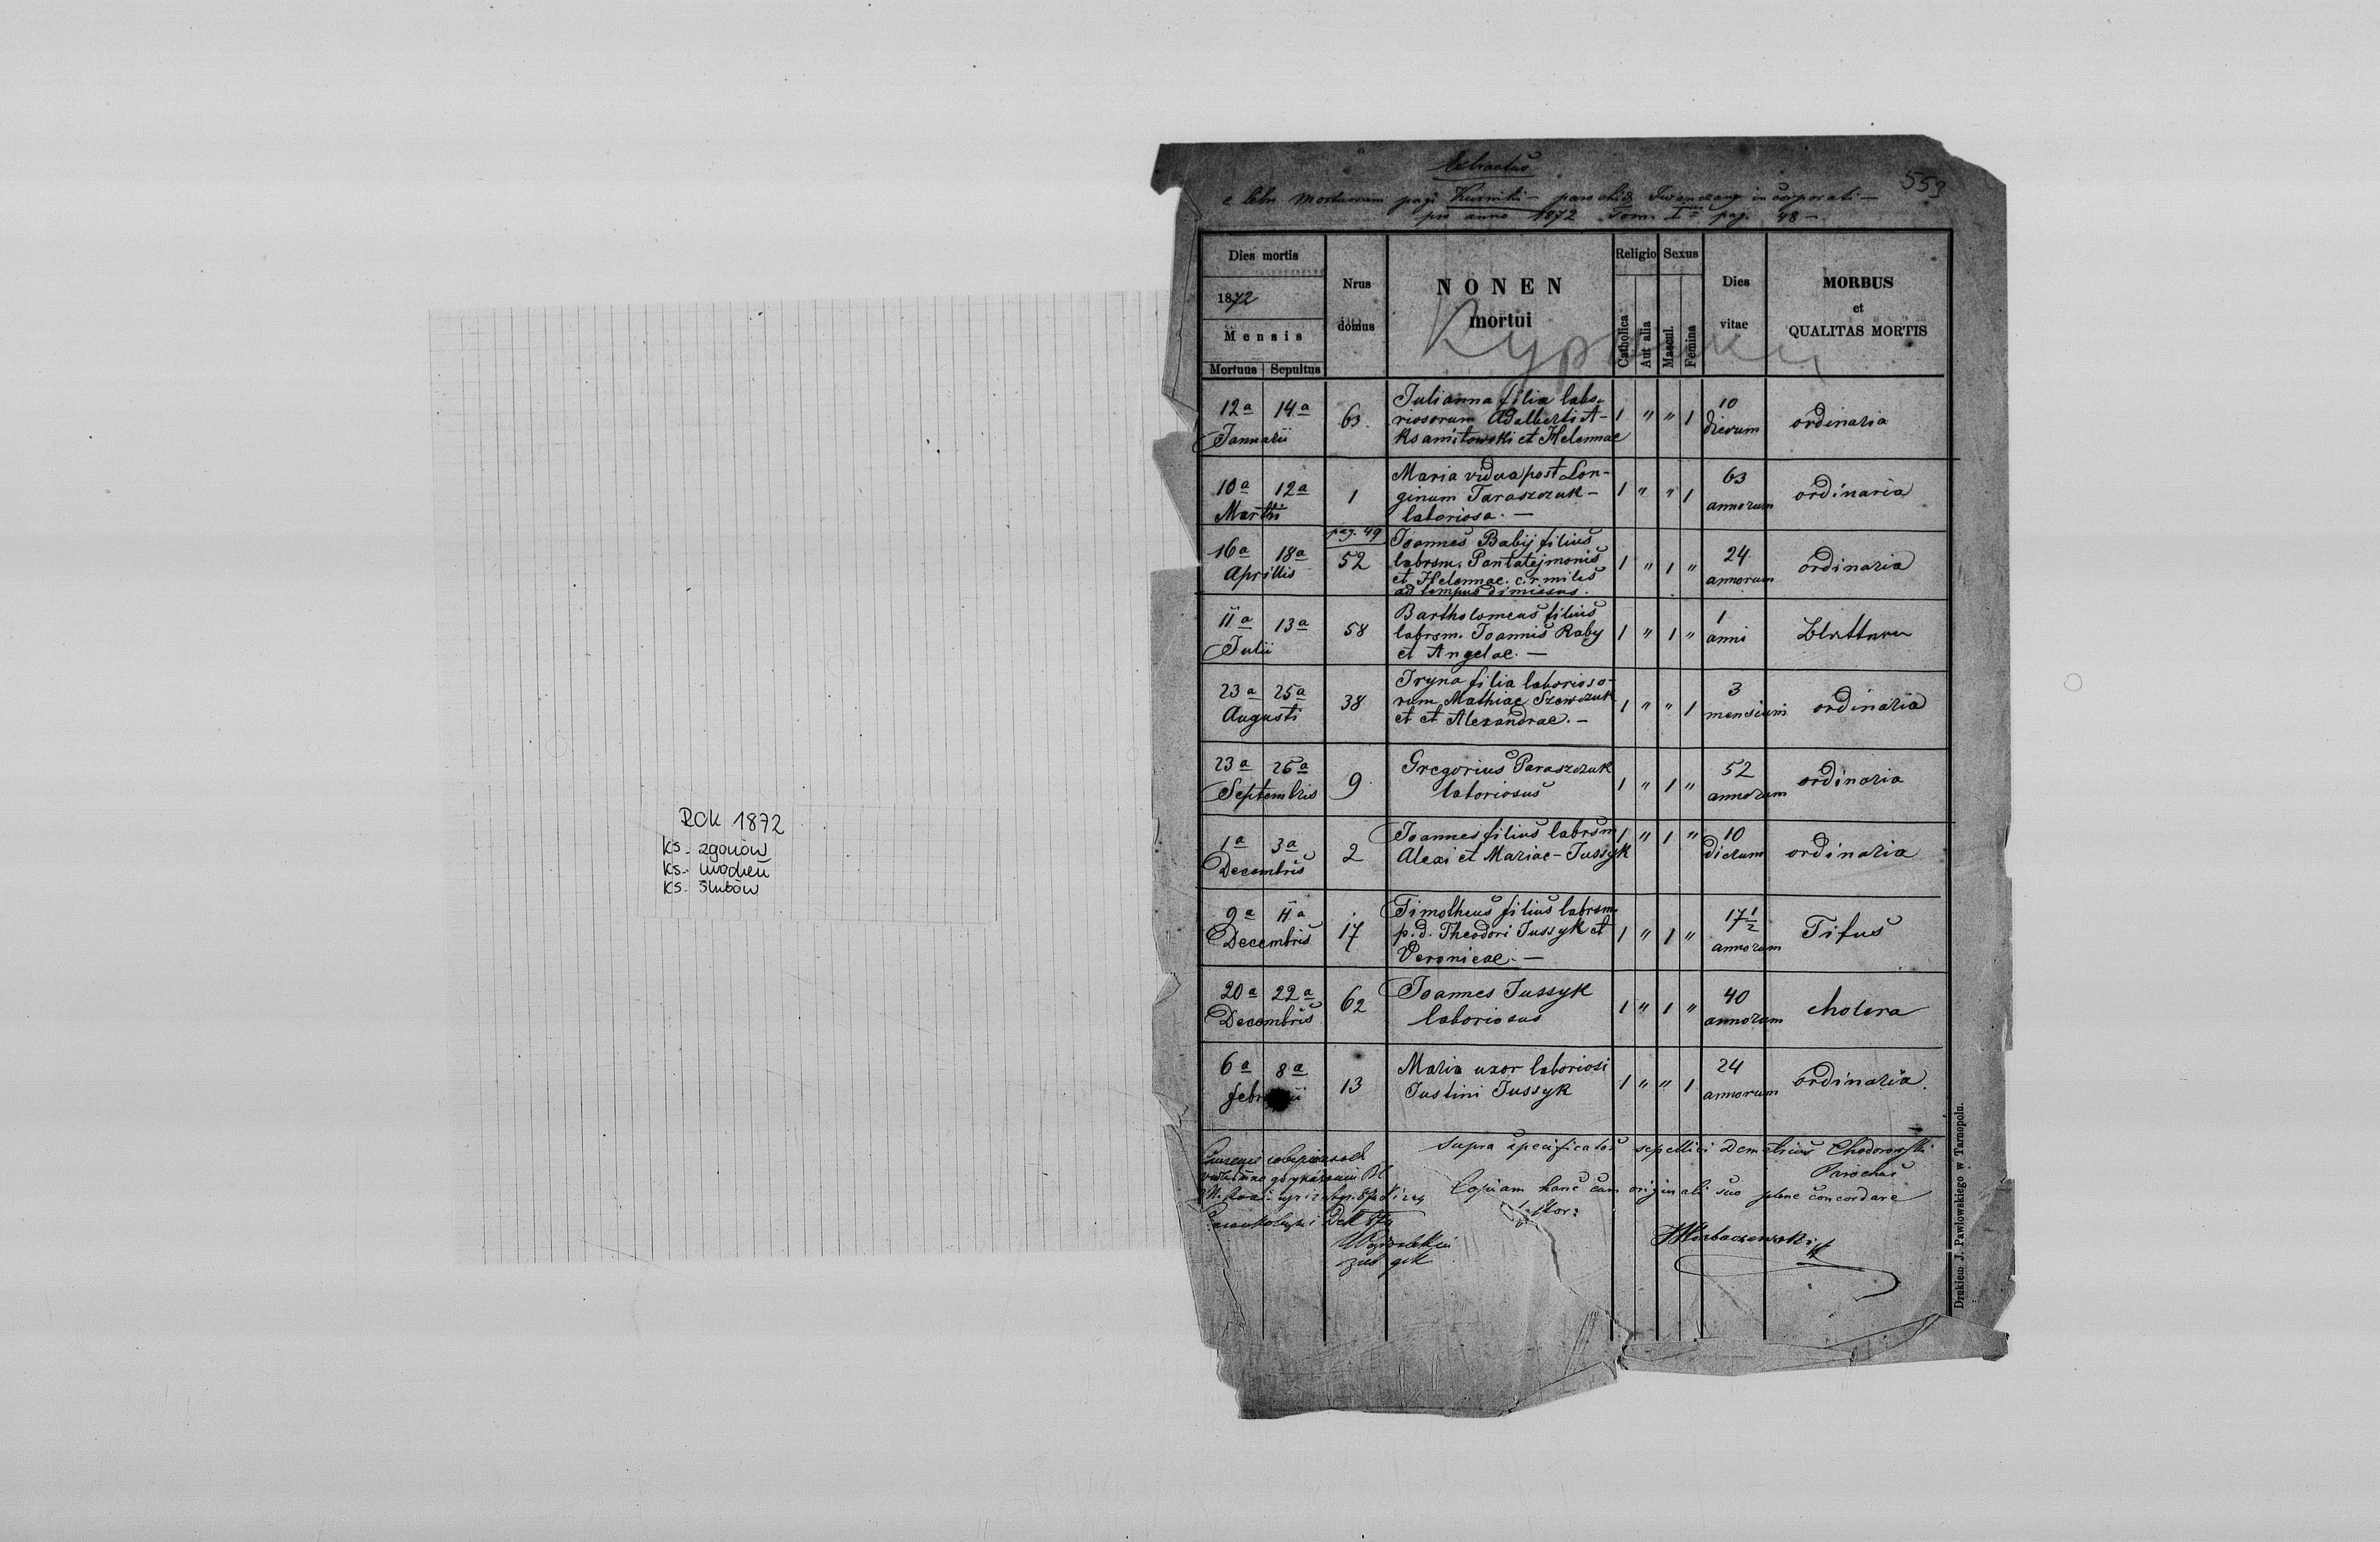 ROK 1872
Ks. zgonów
Ks. urodzeń
Ks. ślubów
Extractus
553
e libro mortuorum pagi Kurniki - parochiæ Iwanczany incorporati -
pro anno 1872 Tom. I pag. 48 -
Dies mortis
1872
Mensis
Mortuus Sepultus
Nrus domus
NONEN mortui
Religio
Catholica
Aut alia
Sexus
Mascul.
Femina
Dies vitae
MORBUS
et
QUALITAS MORTIS
12a 14a Januarii 63. Julianna filia labo-
riosorum Adalberti A-
ksamitowski et Helennae 1 " " 1 10 dierum ordinaria
10a 12a Martii 1 Maria vidua post Lon-
ginum Taraszczuk -
laboriosa. - 1 " " 1 63 annorum ordinaria
pag. 49
16a 18a Aprillis 52 Joannes Babij filius
labrsm. Pantalejmonis
et Helennae. c. r. miles
ad tempus dimissus. 1 " 1 " 24 annorum ordinaria
11a 13a Julii 58 Bartholomeus filius
labrsm. Joannis Raby
et Angelae. - 1 " 1 " 1 anni
23a 25a Augusti 38 Iryna filia laborioso-
rum Mathiae Szewczuk
et et Alexandrae. - 1 " " 1 3 mensium ordinaria
23a 25a Septembris 9 Gregorius Paraszczuk
laboriosus 1 " 1 " 52 annorum ordinaria
1a 3a Decembris 2 Joannes filius labrsm
Alexi et Mariae - Jussyk 1 " 1 " 10 dierum ordinaria
9a 11a Decembris 17 Timotheus filius labrsm.
p. d. Theodori Jussyk et
Veronicae. - 1 " 1 " 17 1/2 annorum Tifus
20a 22a Decembris 62 Joannes Jussyk
laboriosus 1 " 1 " 40 annorum cholera
6a 8a febr 13 Maria uxor laboriosi
Justini Jussyk 1 " " 1 24 annorum ordinaria.
Supra specificatos sepellivi Demetrius Chodorowski
Parochus
Copiam hanc cum originali suo plene concordare
Drukiem J. Pawłowskiego w Tarnopolu.